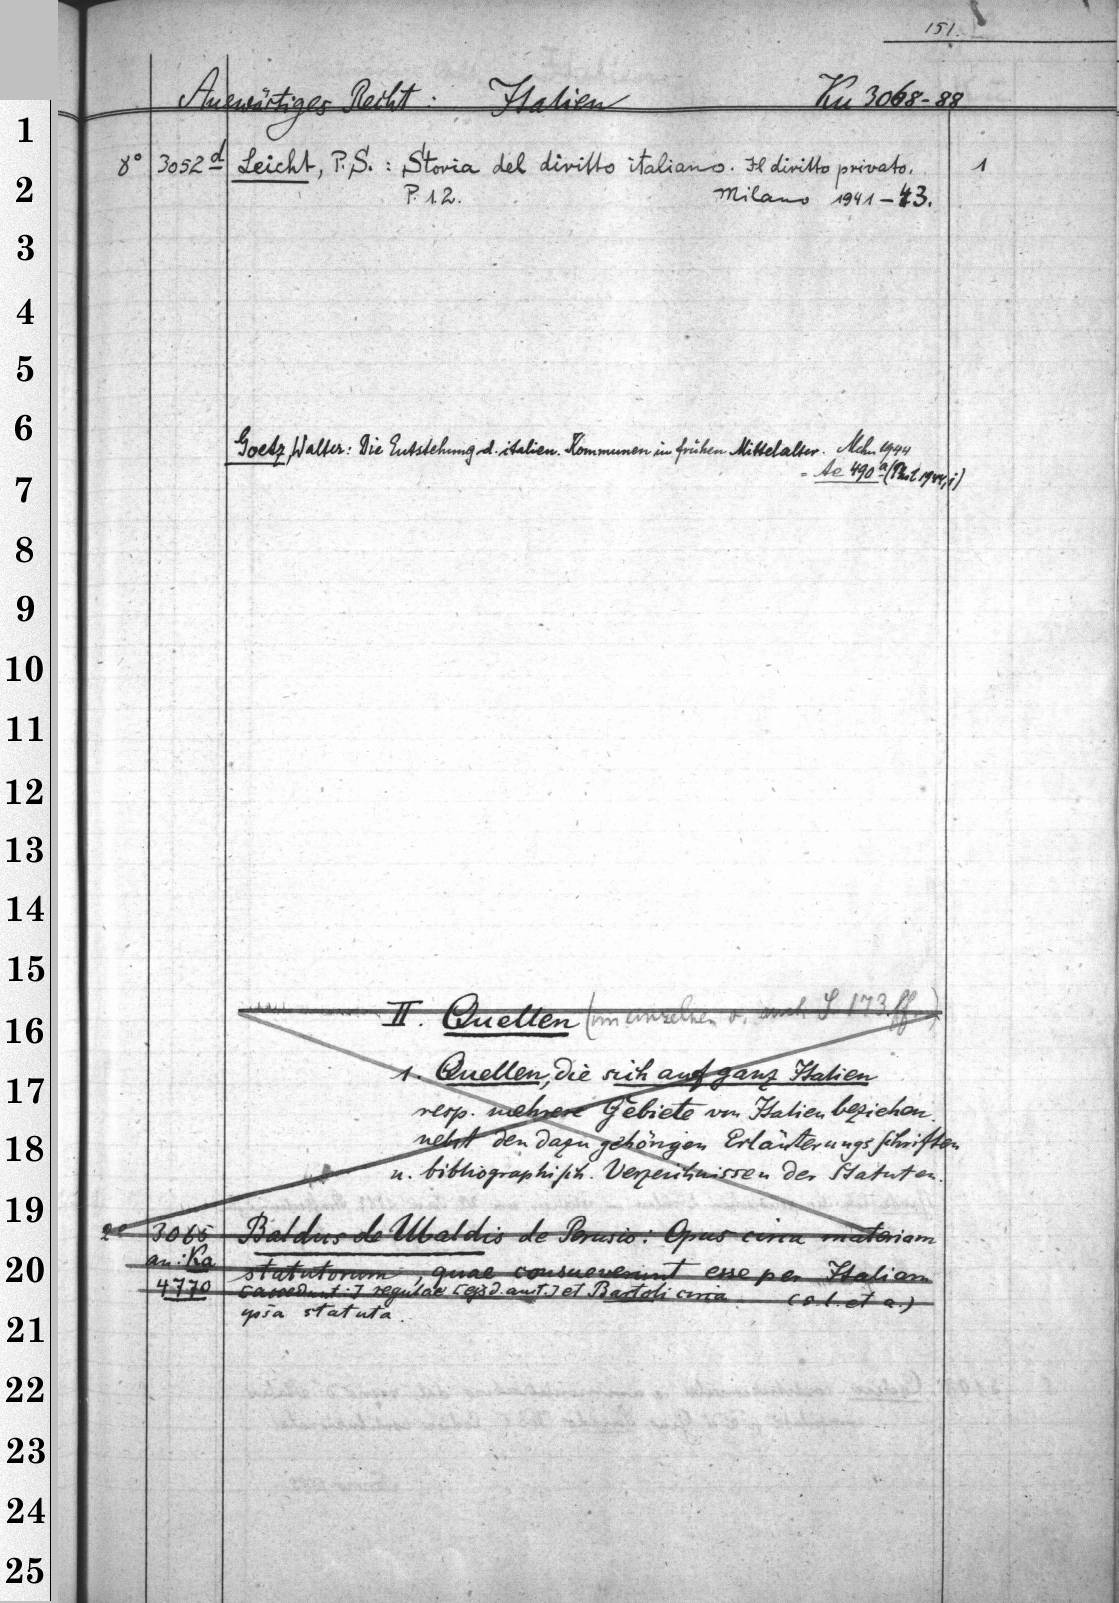 151.
Auswärtiges Recht: Italien Ku 3068-88
8° 3052 d Leicht, P. S.: Storia del diritto italiano. Il diritto privato. 1
P. 1.2. Milano 1941-43.
Goetz, Walter: Die Entstehung d. italien. Kommunen im frühen Mittelalter. Mchn 1944
= Ac 490 a (Phil 1944,1)
II. Quellen (im einzelnen s. auch S. 173 ff.)
1. Quellen, die sich auf ganz Italien
resp. mehrere Gebiete von Italien beziehen
nebst den dazu gehörigen Erläuterungsschriften
u. bibliographisch. Verzeichnissen der Statuten.
2° 3065 Baldus de Ubaldis de Perusio: Opus circa materiam
an: Ka statutorum, quae consueverunt esse per Italiam
4770 [accedunt:] regulae [ejsd. auct.] et Bartoli circa (s. l. et a.)
ypsa statuta.
1
2
3
4
5
6
7
8
9
10
11
12
13
14
15
16
17
18
19
20
21
22
23
24
25